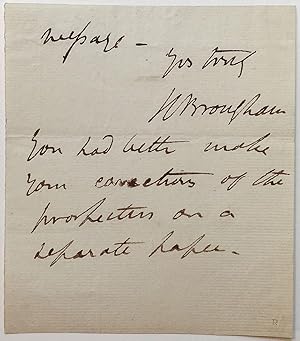 message –
Yrs truly
H Brougham
You had better make
your corrections of the
prospectus on a
separate paper –